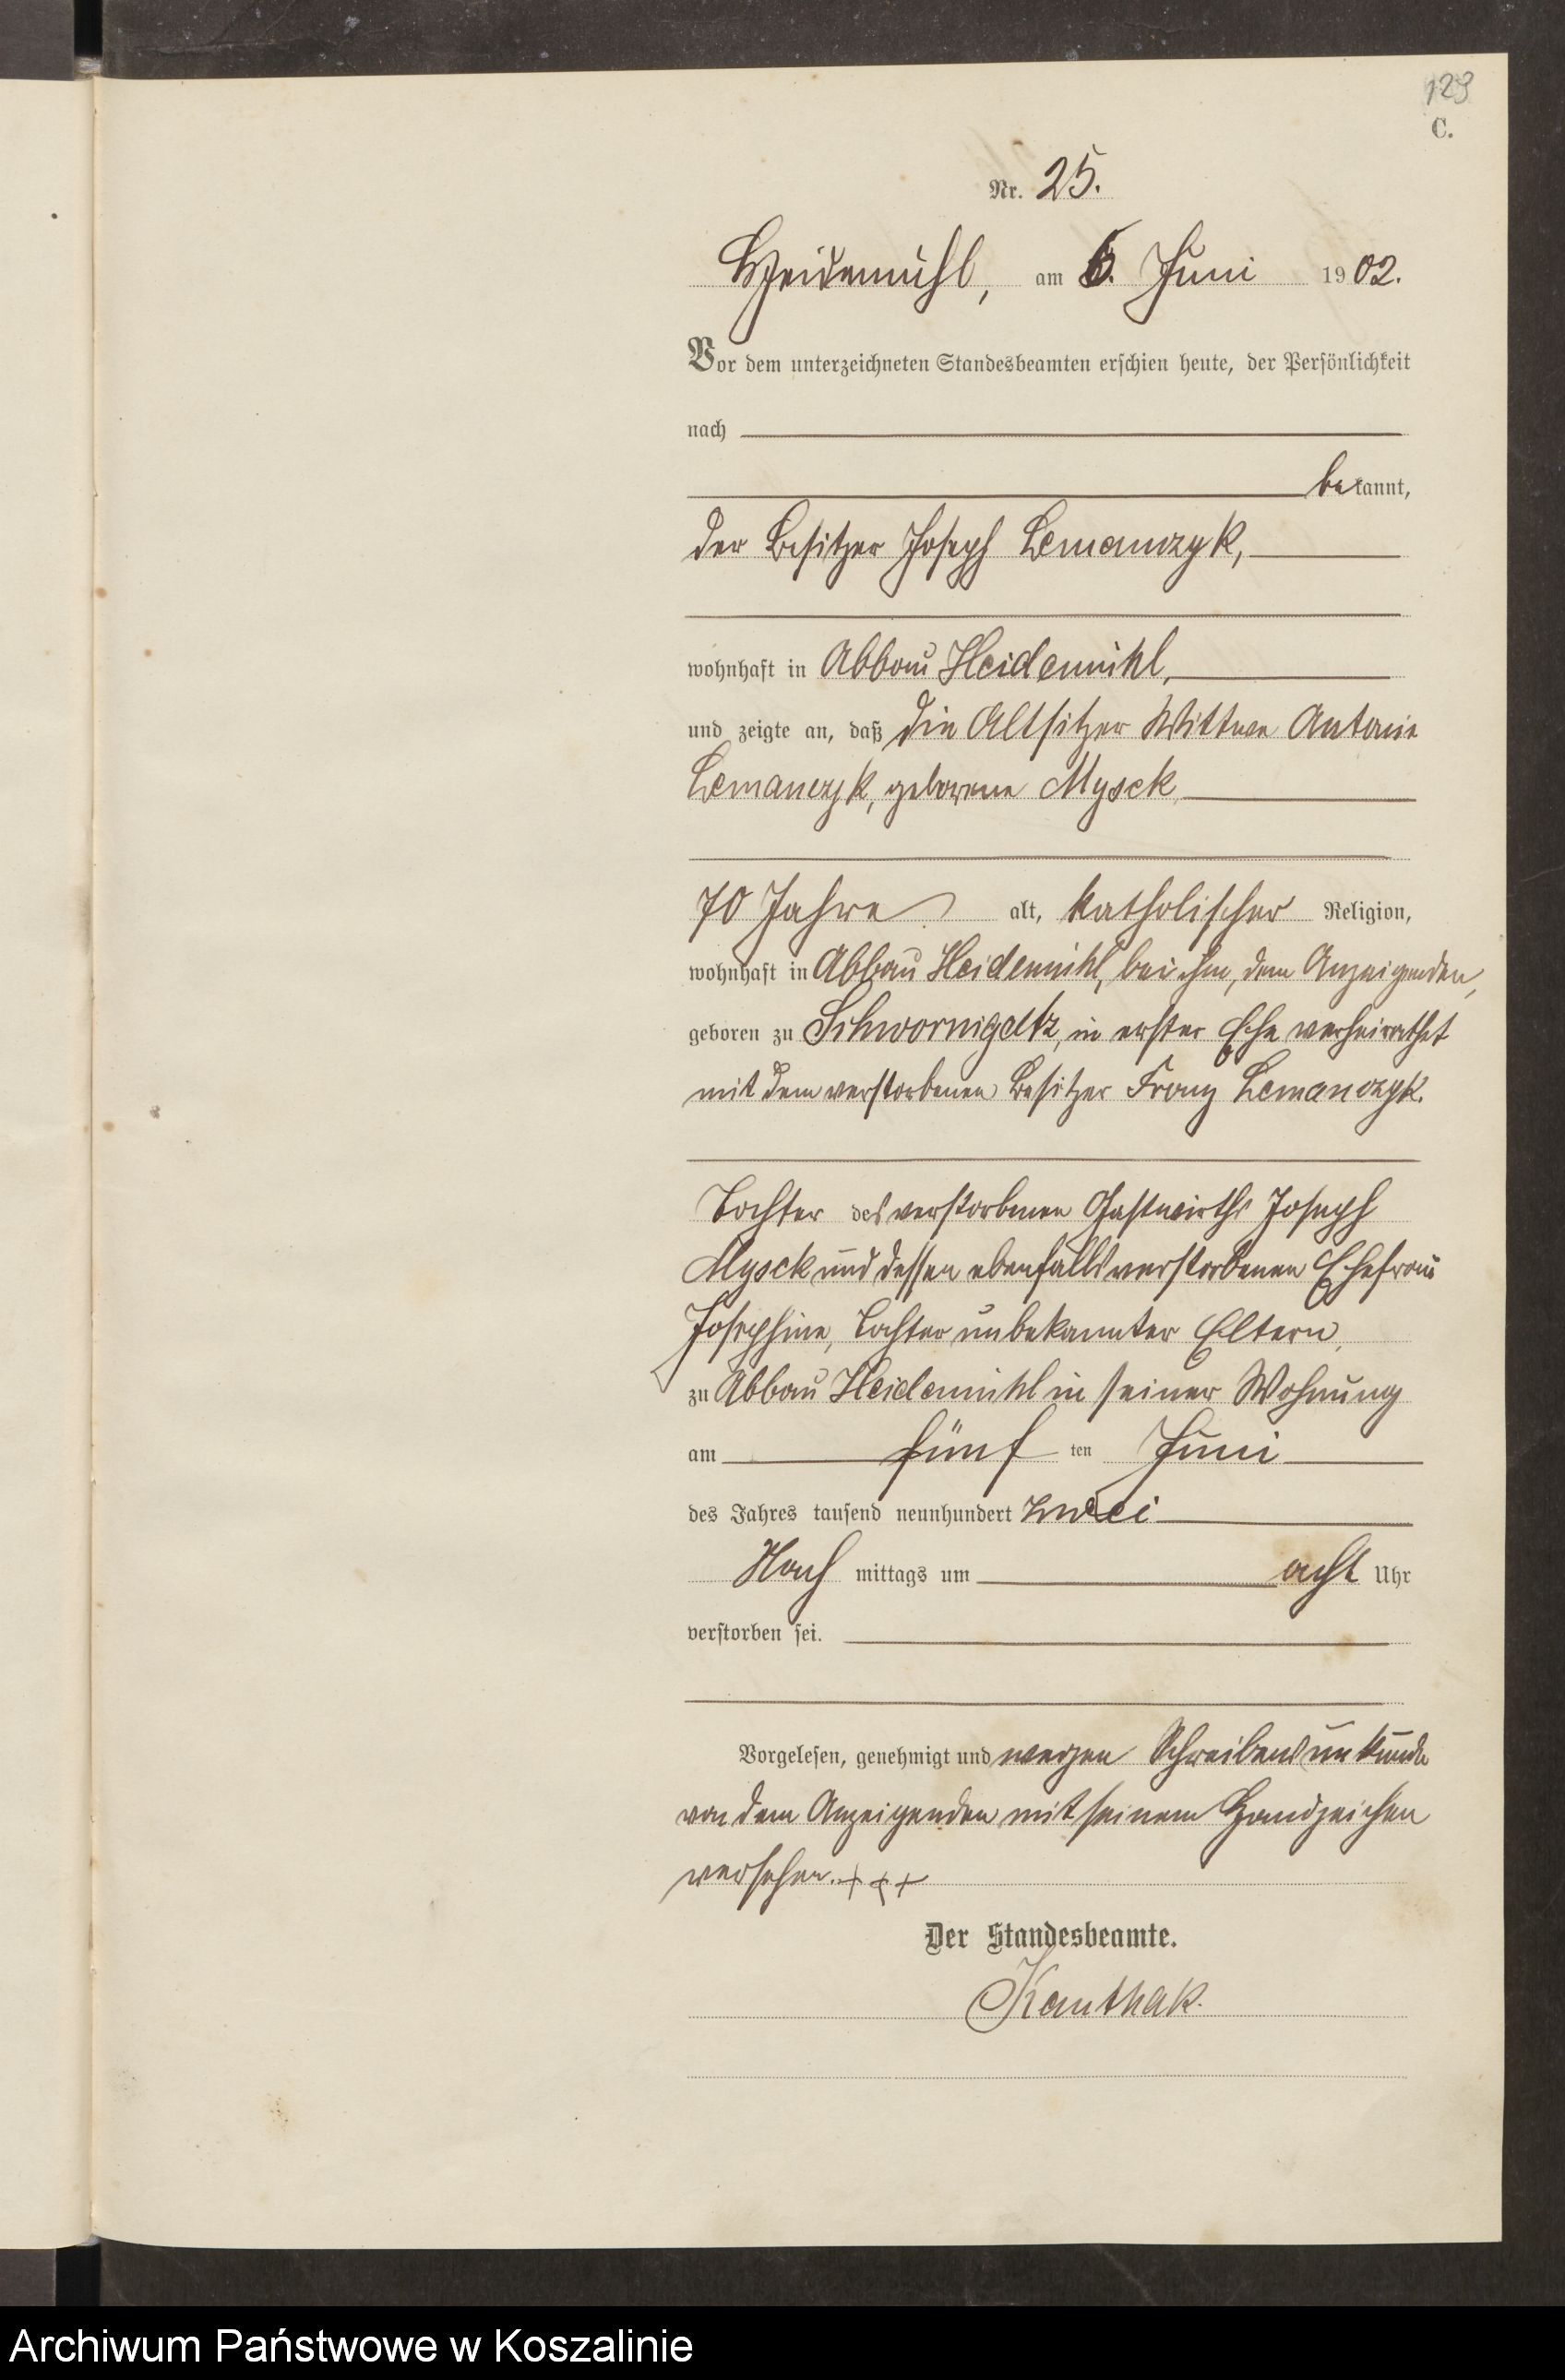 129
C.
Nr. 25.
Heidemühl, am 6. Juni 1902.
Vor dem unterzeichneten Standesbeamten erschien heute, der Persönlichkeit
nach
bekannt,
der Besitzer Joseph Lemanczyk,
wohnhaft in Abbau Heidemühl,
und zeigte an, daß die Altsitzer Wittwe Antonie
Lemanczyk, geborene Mysck
70 Jahre alt, katholischer Religion,
wohnhaft in Abbau Heidemühl, bei ihm, dem Anzeigenden,
geboren zu Schwornigatz, in erster Ehe verheirathet
mit dem verstorbenen Besitzer Franz Lemanczyk.
Tochter des verstorbenen Gastwirths Joseph
Mysck und dessen ebenfalls verstorbenen Ehefrau
Josephine, Tochter unbekannter Eltern,
zu Abbau Heidemühl in seiner Wohnung
am fünf ten Juni
des Jahres tausend neunhundert zwei
Nach mittags um acht Uhr
verstorben sei.
Vorgelesen, genehmigt und wegen Schreibensunkunde
von dem Anzeigenden mit seinem Handzeichen
versehen. + + +
Der Standesbeamte.
Kanthak.
Archiwum Państwowe w Koszalinie